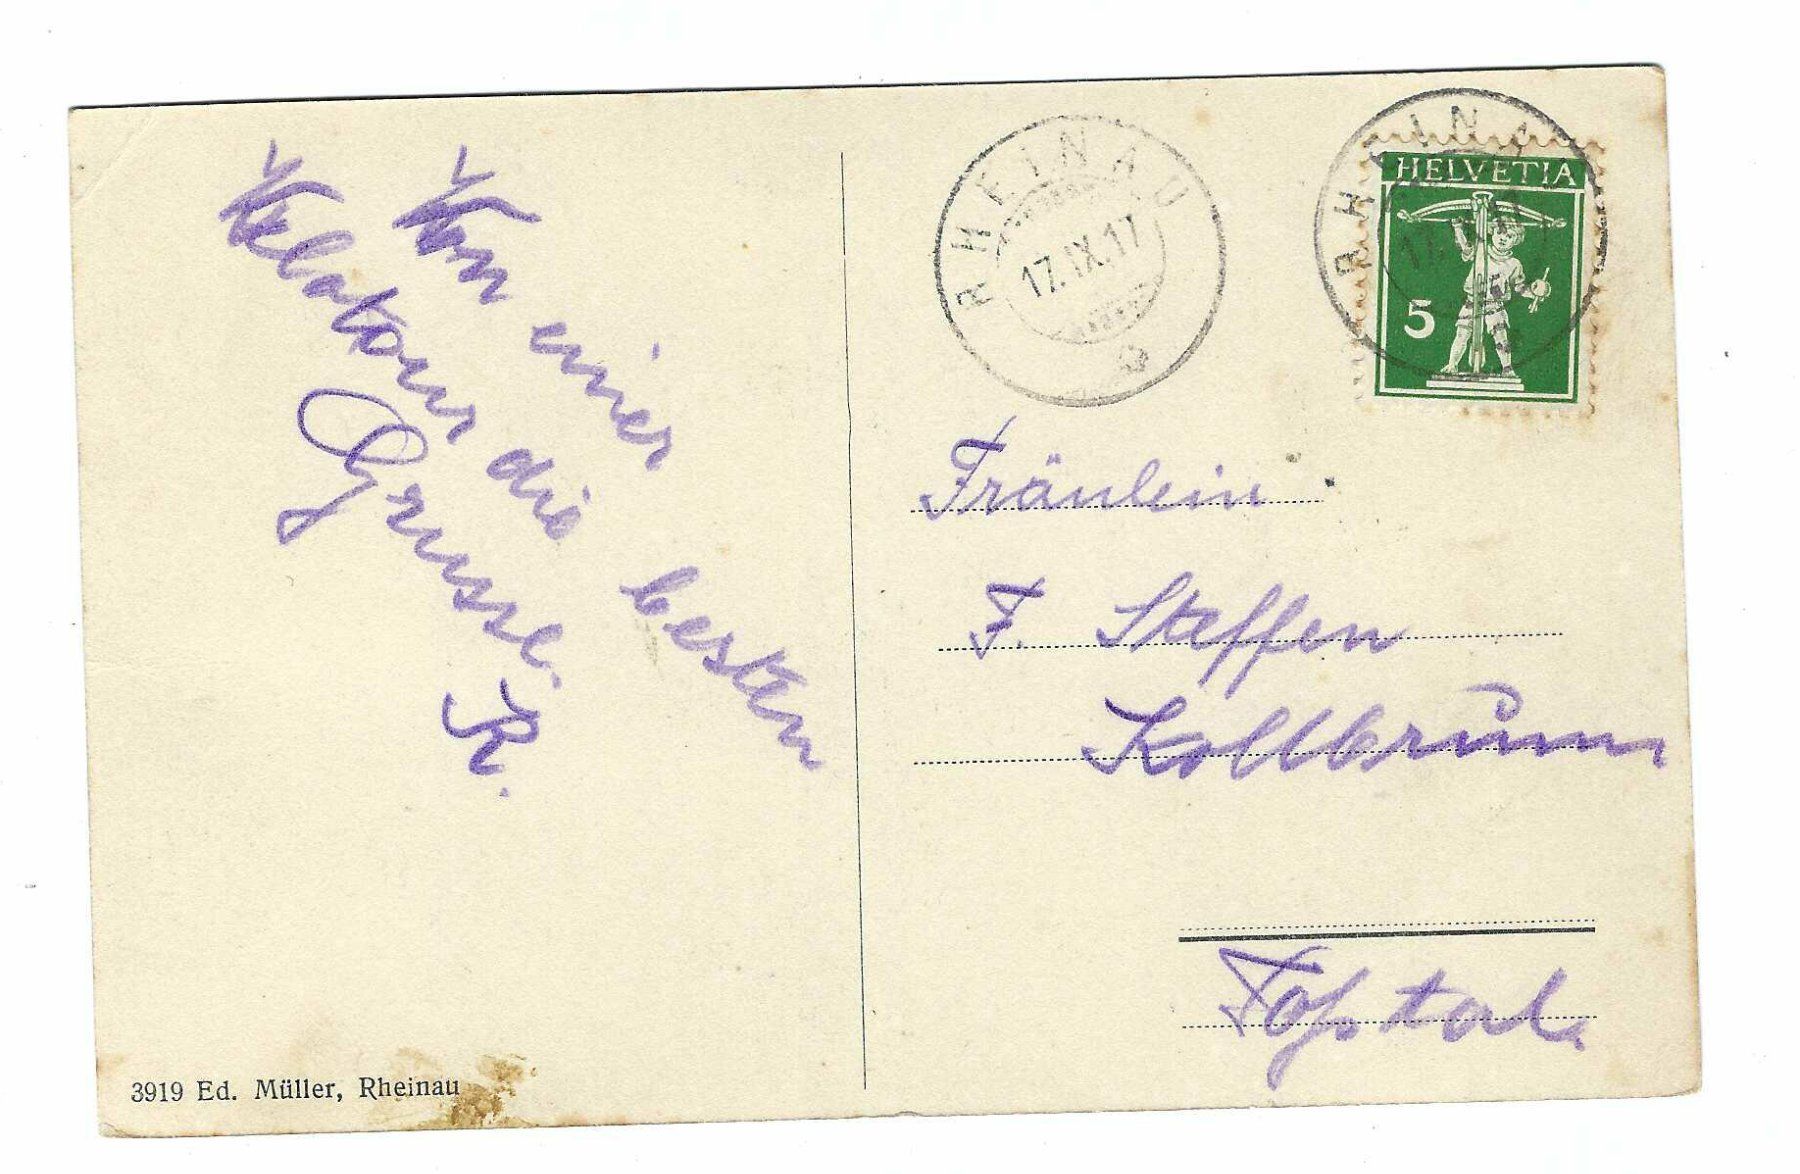 Von einer
Velotour die besten
Grüsse.
R.
RHEINAU
17.IX.17
RHEINAU
17.IX.17
HELVETIA
5
Fräulein
F. Steffen
Kollbrunn
Tösstal.
3919 Ed. Müller, Rheinau